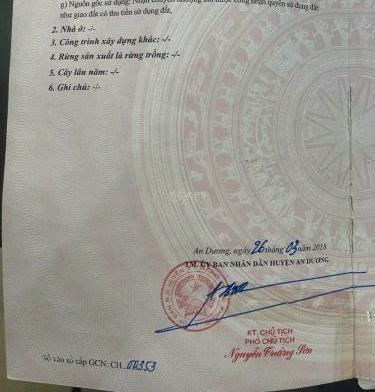 g) Nguồn gốc sử dụng: Nhận chuyển nhượng đất được công nhận quyền sử dụng đất
như giao đất có thu tiền sử dụng đất.
2. Nhà ở: -/-
3. Công trình xây dựng khác: -/-
4. Rừng sản xuất là rừng trồng: -/-
5. Cây lâu năm: -/-
6. Ghi chú: -/-
An Dương, ngày 26 tháng 03 năm 2018
TM. ỦY BAN NHÂN DÂN HUYỆN AN DƯƠNG
KT. CHỦ TỊCH
PHÓ CHỦ TỊCH
Nguyễn Trường Sơn
Số vào sổ cấp GCN: CH 00353